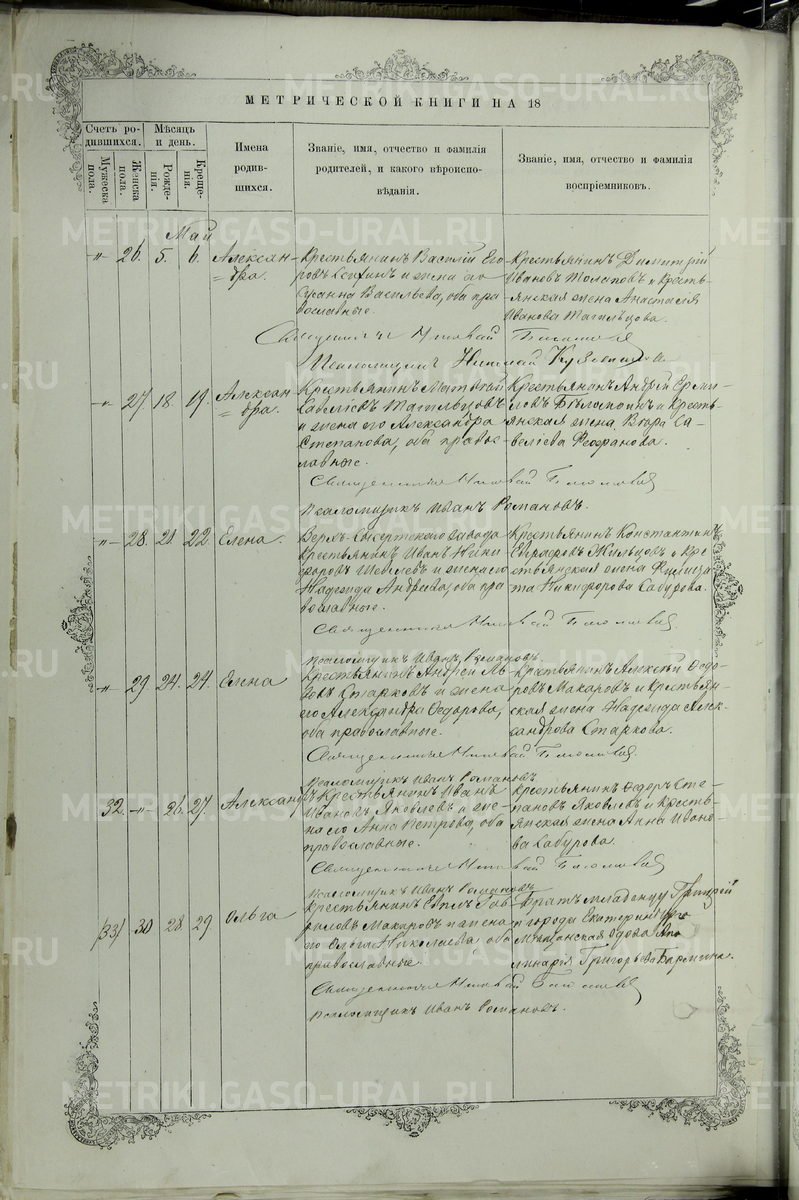 МЕТРИЧЕСКОЙ КНИГИ НА 18
Счетъ ро-
дившихся.
Мѣсяцъ
и день.
Мужеска
пола.
Женска
пола.
Рожде-
нія.
Креще-
нія.
Имена
родив-
шихся.
Званіе, имя, отчество и фамилія
родителей, и какого вѣроиспо-
вѣданія.
Званіе, имя, отчество и фамилія
воспріемниковъ.
Май
-"- 26. 5. 6. Алексан-
=дра.
Крестьянинъ Василій Его
ровъ и жена его
Васильева, оба пра
вославные.
Крестьянинъ Димитрій
Ивановъ и кресть-
янская жена Анастасія
Иванова Тагильцова.
Священникъ
Псаломщикъ Николай
-"- 27 18. 19. Алексан
=дра.
Крестьянинъ Матвѣй
Савеліевъ Тагильцовъ
и жена его Александра
Степанова, оба правос-
лавные.
Крестьянинъ Андрей Ерми-
ловъ и кресть-
янская жена Вѣра Са-
веліева Феофанова.
Священникъ
Псаломщикъ Иванъ Романовъ.
-"- 28. 21 22. Елена.
Верхъ-Сысертскаго завода
крестьянинъ Иванъ Ники
форовъ и жена его
Надежда Андреева, оба пра
вославные.
Крестьянинъ Константинъ
Жильцовъ и кре
стьянская жена
Никифорова Сабурова.
Священникъ
Псаломщикъ Иванъ Романовъ.
-"- 29. 24. 24. Елена
Крестьянинъ Андрей Ль
вовъ Старковъ и жена
его Александра Ѳедорова,
оба православные.
Крестьянинъ Алексѣй Ѳедо-
ровъ Макаровъ и крестьян-
ская жена Надежда Алек-
сандрова Старкова.
Священникъ
Псаломщикъ Иванъ Романовъ
32. -"- 26. 27. Александръ
Крестьянинъ Иванъ
Ивановъ Яковлевъ и же-
на его Анна Петрова, оба
православные.
Крестьянинъ Ѳедоръ Сте-
пановъ Яковлевъ и кресть-
янская жена Анна Ивано-
ва Сабурова.
Священникъ
Псаломщикъ Иванъ Романовъ
/33/ 30 28 29 Ольга
Крестьянинъ Гав-
риловъ Макаровъ и жена
его Ольга Николаева, оба
православные.
Братъ младенцу Григорій
и города Екатеринбурга
мѣщанская вдова Апо
линарія Григорьева
Священникъ
Псаломщикъ Иванъ Романовъ.
METRIKI.GASO-URAL.RU